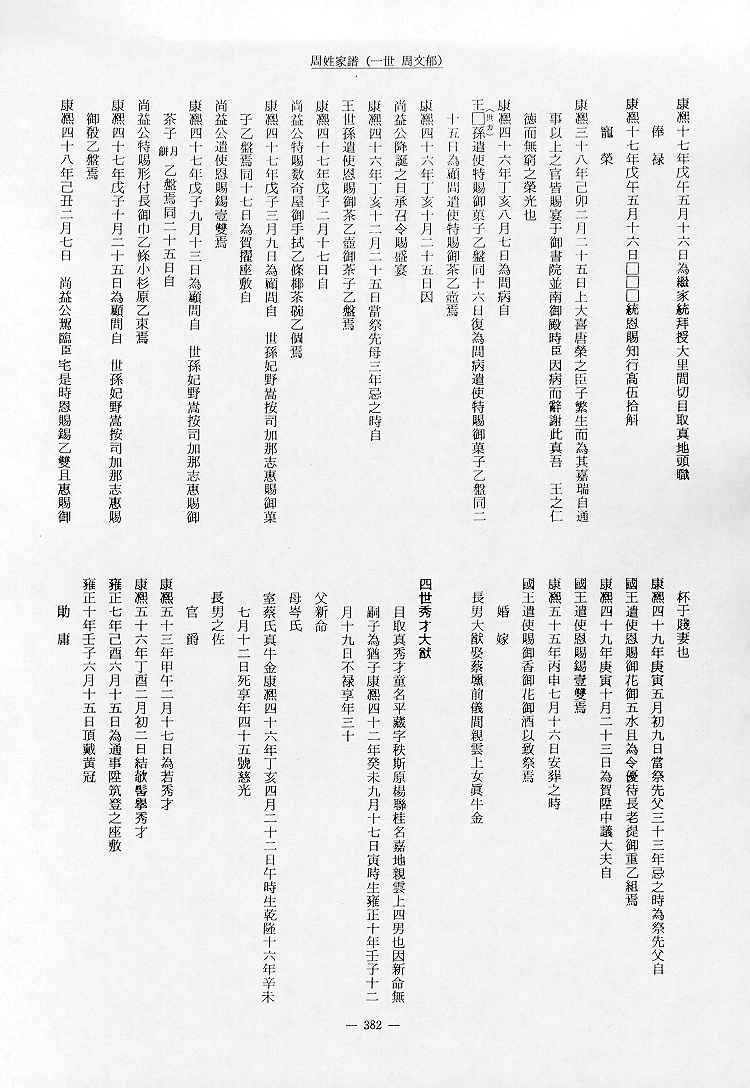 周姓家譜（一世　周文郁）
康熙十七年戊午五月十六日為繼家統拜授大里間切目取真地頭職
俸禄
康熙十七年戊午五月十六日□□□統恩賜知行高伍拾斛
寵榮
康熙三十八年己卯二月二十五日上大喜唐榮之臣子繁生而為其嘉瑞自通
事以上之官皆賜宴于御書院並南御殿時臣因病而辭謝此真吾　王之仁
徳而無窮之榮光也
康熙四十六年丁亥八月七日為問病自
王□孫遣使特賜御菓子乙盤同十六日復為問病遣使特賜御菓子乙盤同二
（世カ）
十五日為顧問遣使特賜御茶乙壺焉
康熙四十六年丁亥十月二十五日因
尚益公降誕之日承召令賜盛宴
康熙四十六年丁亥十二月二十五日當祭先母三年忌之時自
王世孫遣使恩賜御茶乙壺御茶子乙盤焉
康熙四十七年戊子二月十七日自
尚益公特賜数奇屋御手拭乙條椰茶碗乙個焉
康熙四十七年戊子三月九日為顧問自　世孫妃野嵩按司加那志惠賜御菓
子乙盤焉同十七日為賀擢座敷自
尚益公遣使恩賜錫壹雙焉
康熙四十七年戊子九月十三日為顧問自　世孫妃野嵩按司加那志惠賜御
茶子月餅乙盤焉同二十五日自
尚益公特賜形付長御巾乙條小杉原乙束焉
康熙四十七年戊子十月二十五日為顧問自　世孫妃野嵩按司加那志惠賜
御殽乙盤焉
康熙四十八年己丑二月七日　尚益公駕臨臣宅是時恩賜錫乙雙且惠賜御
杯于賤妻也
康熙四十九年庚寅五月初九日當祭先父三十三年忌之時為祭先父自
國王遣使恩賜御花御五水且為令優待長老提御重乙組焉
康熙四十九年庚寅十月二十三日為賀陞中議大夫自
國王遣使恩賜錫壹雙焉
康熙五十五年丙申七月十六日安葬之時
國王遣使賜御香御花御酒以致祭焉
婚嫁
長男大猷娶蔡壎前儀間親雲上女眞牛金
四世秀才大猷
目取真秀才童名平藏字秩斯原楊聯桂名嘉地親雲上四男也因新命無
嗣子為猶子康熙四十二年癸未九月十七日寅時生雍正十年壬子十二
月十九日不禄享年三十
父新命
母岑氏
室蔡氏真牛金康熙四十六年丁亥四月二十二日午時生乾隆十六年辛未
七月十二日死享年四十五號慈光
長男之佐
官爵
康熙五十三年甲午二月十七日為若秀才
康熙五十六年丁酉二月初二日結欹髻擧秀才
雍正七年己酉六月十五日為通事陞筑登之座敷
雍正十年壬子六月十五日頂戴黄冠
勛庸
— 382 —